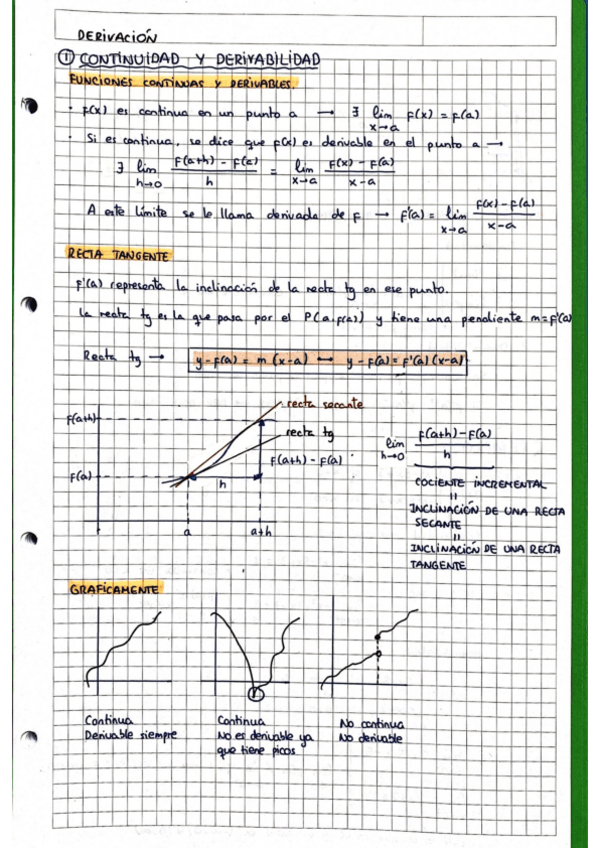 DERIVACIÓN
① CONTINUIDAD Y DERIVABILIDAD
FUNCIONES CONTINUAS Y DERIVABLES.
· f(x) es continua en un punto a → ∃ lim x→a f(x) = f(a)
· Si es continua, se dice que f(x) es derivable en el punto a →
∃ lim h→0 (f(a+h) - f(a))/h = lim x→a (f(x) - f(a))/(x-a)
A este límite se le llama derivada de f → f'(a) = lim x→a (f(x) - f(a))/(x-a)
RECTA TANGENTE
f'(a) representa la inclinación de la recta tg en ese punto.
La recta tg es la que pasa por el P(a,f(a)) y tiene una pendiente m=f'(a)
Recta tg → y-f(a) = m (x-a) ↔ y-f(a) = f'(a) (x-a)
recta secante
f(a+h)
recta tg
f(a+h) - f(a)
f(a)
h
a
a+h
lim h→0 (f(a+h)-f(a))/h
COCIENTE INCREMENTAL
=
INCLINACIÓN DE UNA RECTA
SECANTE
=
INCLINACIÓN DE UNA RECTA
TANGENTE
GRAFICAMENTE
Continua
Derivable siempre
Continua
No es derivable ya
que tiene picos
No continua
No derivable